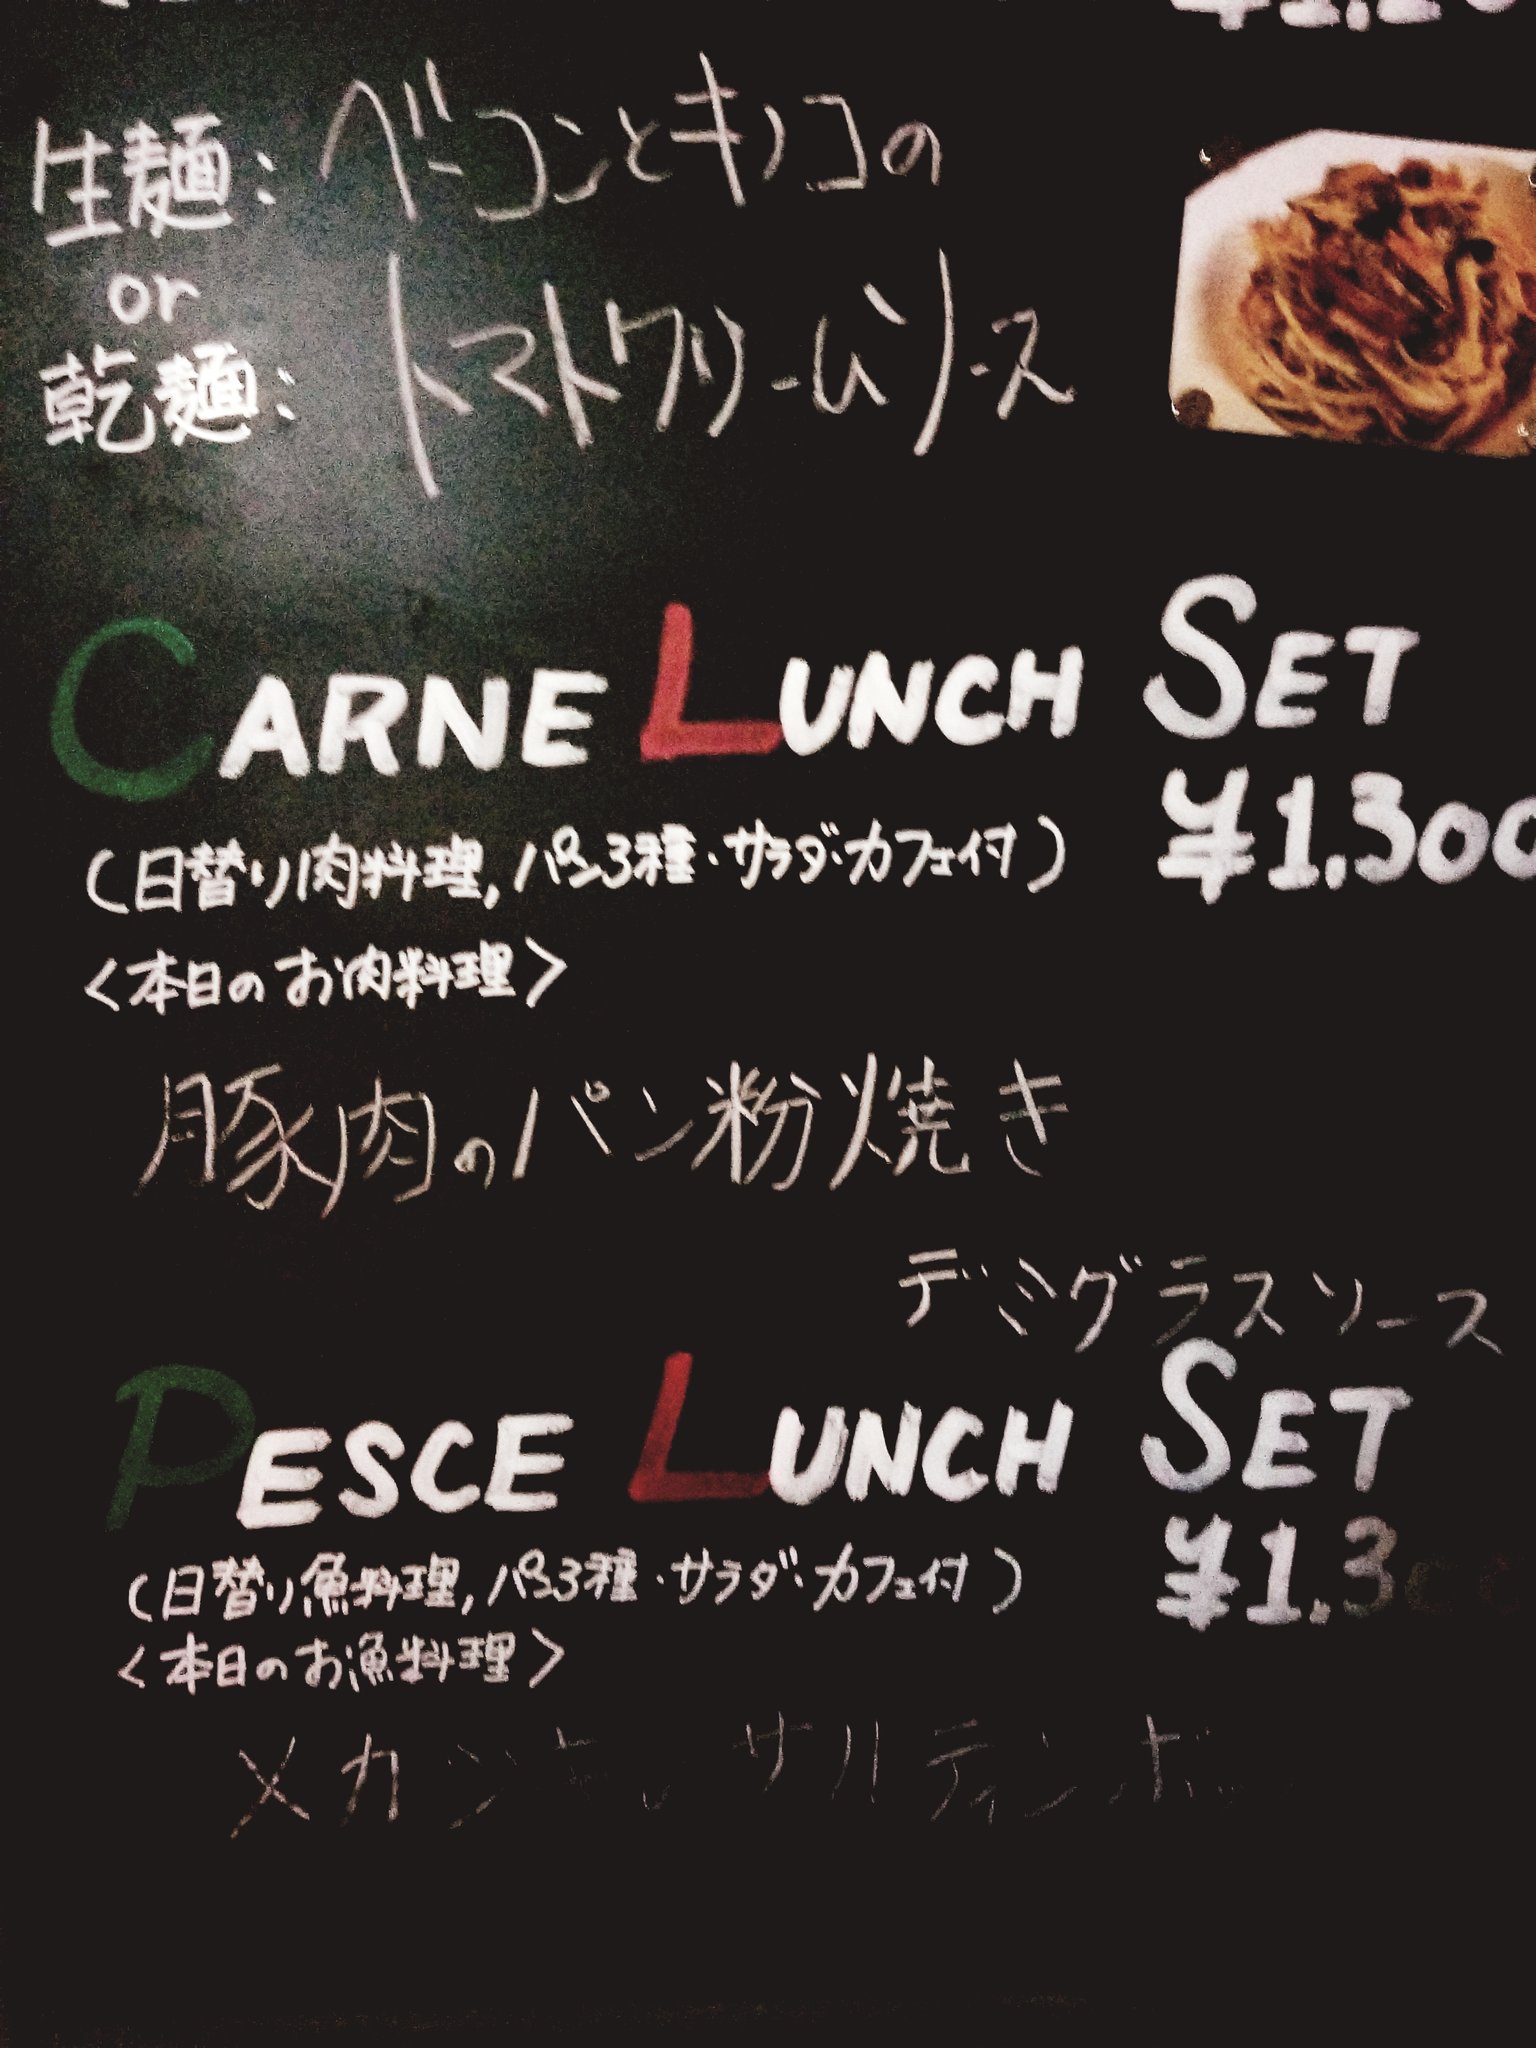 生麺: ベーコンとキノコの
or
乾麺: トマトクリームソース
CARNE LUNCH SET
¥1,300
(日替り肉料理, パン3種・サラダ・カフェ付)
<本日のお肉料理>
豚肉のパン粉焼き
デミグラスソース
PESCE LUNCH SET
¥1,300
(日替り魚料理, パン3種・サラダ・カフェ付)
<本日のお魚料理>
メカジキのサルティンボッ